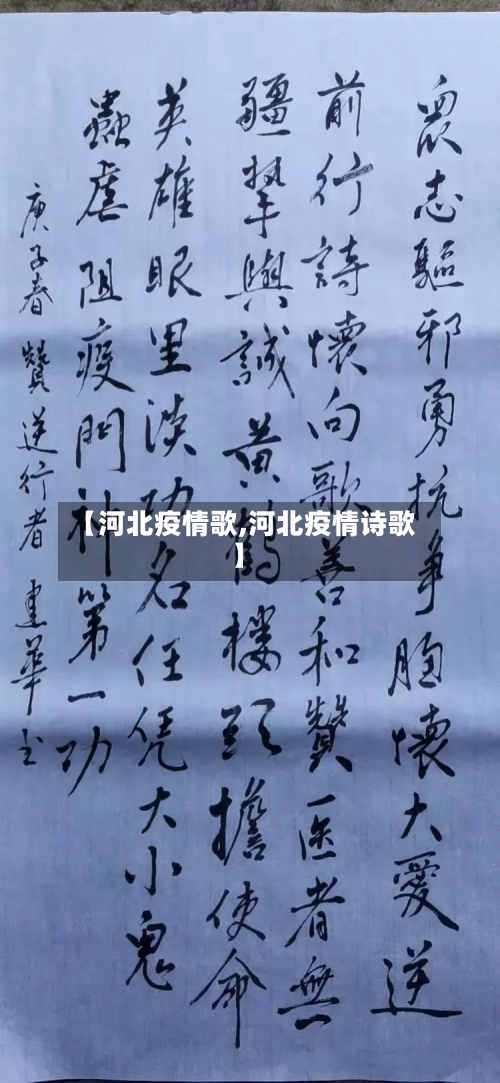 眾志驅邪勇抗爭胸懷大愛逆
前行詩懷向歌善和贊医者無
疆摯與誠黄鹤楼頭擔使命
英雄眼里淡功名任凭大小鬼
蠱虐阻疫門神第一功
庚子春贊逆行者建華书
【河北疫情歌,河北疫情诗歌
】